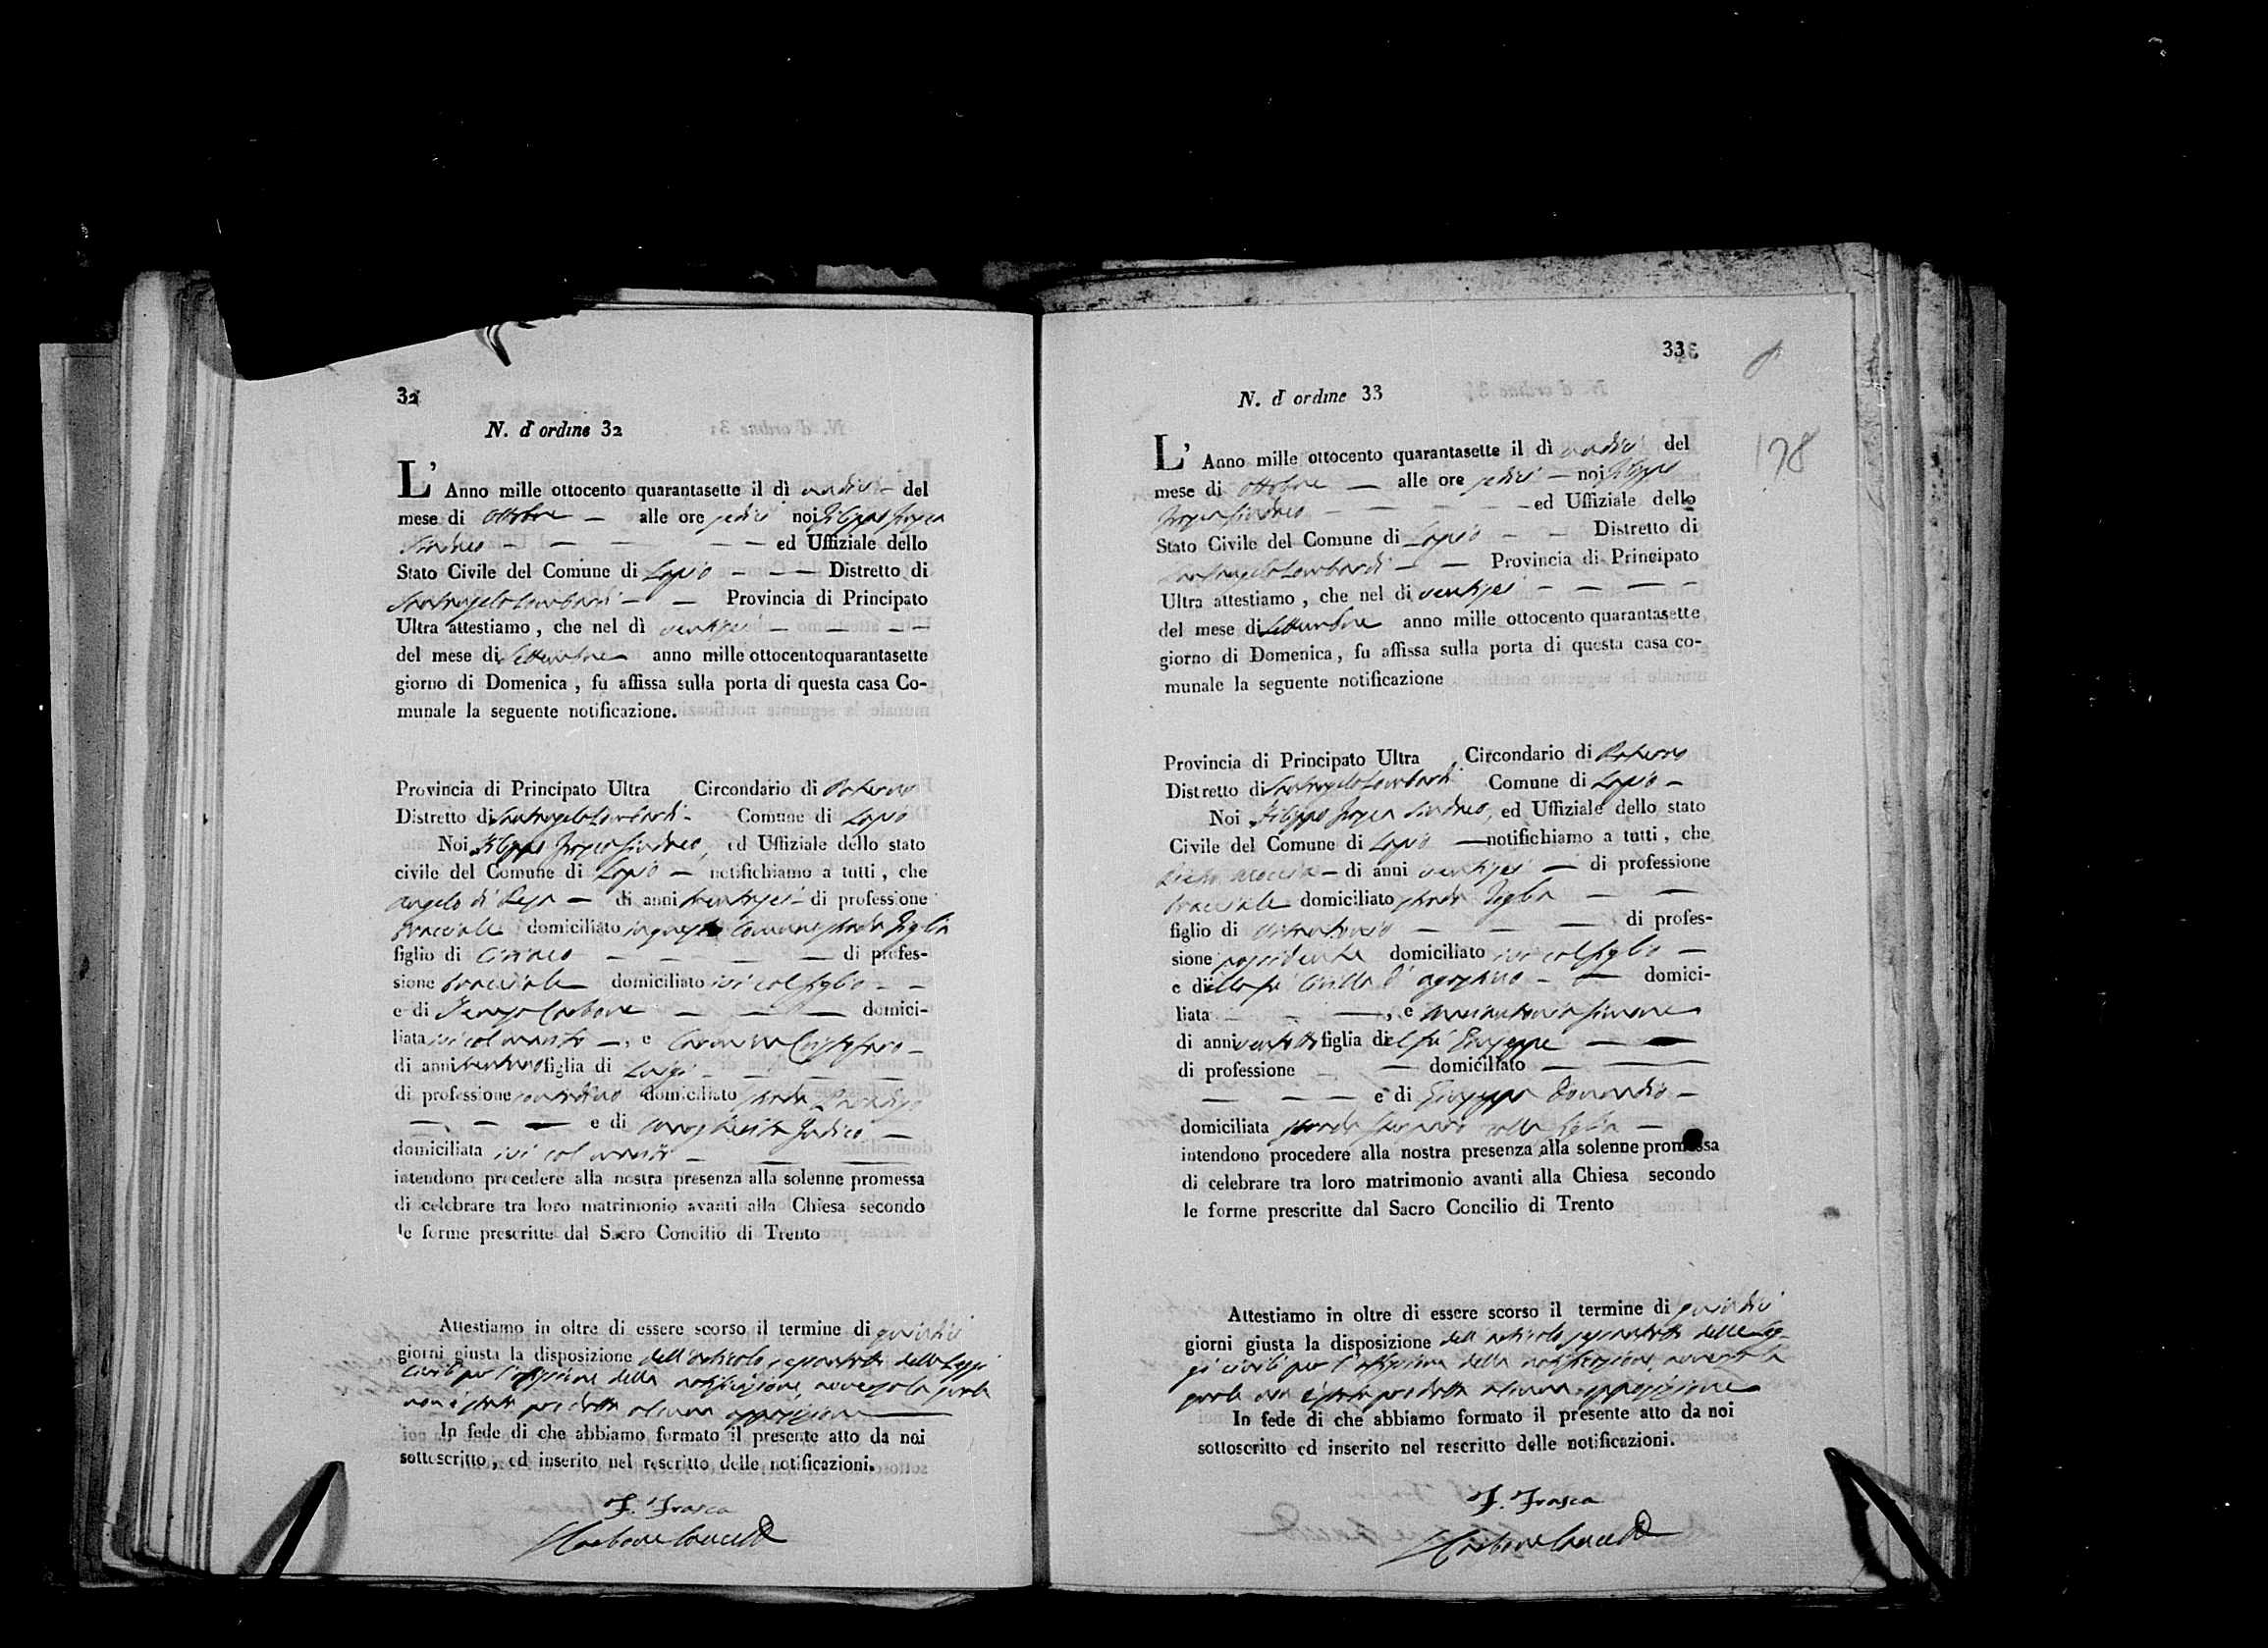 32
N. d'ordine 32
L' Anno mille ottocento quarantasette il dì undici — del
mese di Ottobre — alle ore sedici noi Filippo Frasca
Sindaco — — — — — ed Uffiziale dello
Stato Civile del Comune di Lapio — — — Distretto di
Santangelo Lombardi — — Provincia di Principato
Ultra attestiamo, che nel dì ventisei — — — —
del mese di Settembre anno mille ottocentoquarantasette
giorno di Domenica, fu affissa sulla porta di questa casa Co-
munale la seguente notificazione.
Provincia di Principato Ultra Circondario di Paterno
Distretto di Santangelo Lombardi - Comune di Lapio
Noi Filippo Frasca Sindaco, ed Uffiziale dello stato
civile del Comune di Lapio — notifichiamo a tutti, che
Angelo di — di anni trentasei - di professione
Bracciale domiciliato in questo Comune strada
figlio di Ciriaco — — — — di profes-
sione Bracciale domiciliato ivi col figlio - -
e di Teresa Carbone — — — domici-
liata ivi col marito —, e Carmina Cristofaro —
di anni figlia di Luigi - — — —
di professione domiciliato strada
— — — e di Margherita Iodice —
domiciliata ivi col marito — — —
intendono precedere alla nostra presenza alla solenne promessa
di celebrare tra loro matrimonio avanti alla Chiesa secondo
le forme prescritte dal Sacro Concilio di Trento
Attestiamo in oltre di essere scorso il termine di quindici
giorni giusta la disposizione dell'articolo sessantotto delle Leggi
Civili per l'affissione della notificazione, avverso la quale
non è stata prodotta alcuna opposizione
In fede di che abbiamo formato il presente atto da noi
sottoscritto, ed inserito nel rescritto delle notificazioni.
F. Frasca
Carbone Cancell
33
178
N. d'ordine 33
L' Anno mille ottocento quarantasette il dì undici del
mese di Ottobre — alle ore sedici — noi Filippo
Frasca Sindaco — — — — — ed Uffiziale dello
Stato Civile del Comune di Lapio — — Distretto di
Santangelo Lombardi — — Provincia di Principato
Ultra attestiamo, che nel dì ventisei — — — —
del mese di Settembre anno mille ottocento quarantasette
giorno di Domenica, fu affissa sulla porta di questa casa co-
munale la seguente notificazione
Provincia di Principato Ultra Circondario di Paterno
Distretto di Santangelo Lombardi Comune di Lapio —
Noi Filippo Frasca Sindaco, ed Uffiziale dello stato
Civile del Comune di Lapio — notifichiamo a tutti, che
— di anni ventisei — di professione
Bracciale domiciliato strada — —
figlio di — — — di profes-
sione possidente domiciliato ivi col figlio —
e di della fu Camilla d'Agostino — — domici-
liata — — —, e Mariantonia Simone
di anni ventotto figlia di del fu Giuseppe — —
di professione — — domiciliato — —
— — — e di Giuseppa —
domiciliata strada colla figlia —
intendono procedere alla nostra presenza alla solenne promessa
di celebrare tra loro matrimonio avanti alla Chiesa secondo
le forme prescritte dal Sacro Concilio di Trento
Attestiamo in oltre di essere scorso il termine di quindici
giorni giusta la disposizione dell'articolo sessantotto delle Leg-
gi civili per l'affissione della notificazione, avverso la
quale non è stata prodotta alcuna opposizione
In fede di che abbiamo formato il presente atto da noi
sottoscritto ed inserito nel rescritto delle notificazioni.
F. Frasca
Carbone Cancell